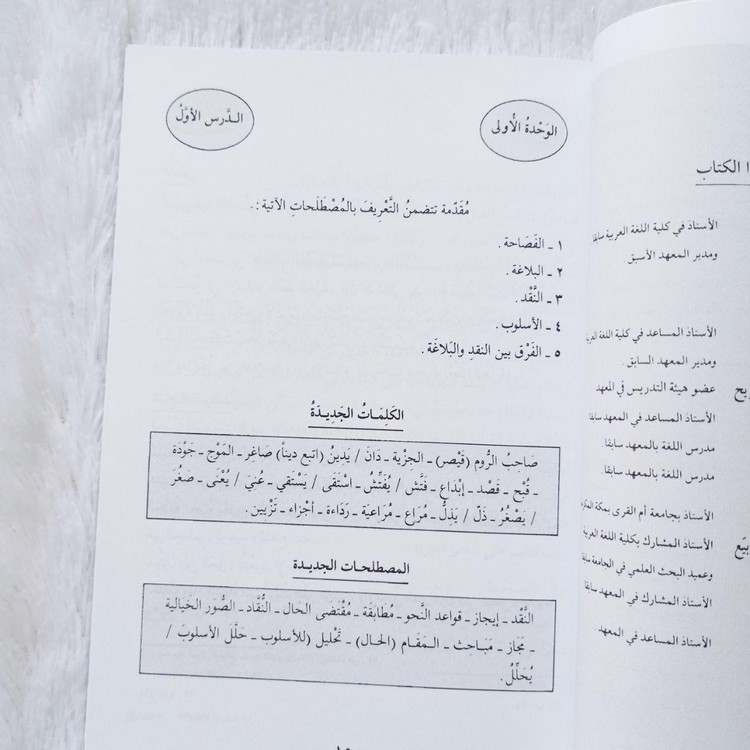 الوَحْدةُ الأولى
الـدَّرس الأوَّلُ
مُقَدّمة تتضمنُ التَّعْرِيفَ بالمُصْطَلَحاتِ الآتية: ـ
١ ـ الفَصَاحة .
٢ ـ البلاغة .
٣ ـ النَّقْد .
٤ ـ الأسلوب .
٥ ـ الفَرْق بين النقدِ والبَلاغَة .
الكَلِمَاتُ الجَدِيدَةُ
صَاحِبُ الرُّوم (قَيْصر) ـ الجِزْية ـ دَانَ / يَدِينُ (اتبع ديناً) صَاغر ـ المَوْج ـ جَوْدَة
ـ قُبْح ـ قَصْد ـ إبْدَاع ـ فَتَّش / يُفَتِّشُ ـ اسْتَقى / يَسْتَقي ـ عُنيَ / يُعْنَى ـ صَغُرَ
/ يَصْغُرُ ـ ذَلّ / يَذِلُّ ـ مُرَاعٍ ـ مُرَاعَاة ـ رَدَاءة ـ أجْزَاء ـ تَزْيين .
المصطلحات الجديدة
النَّقْد ـ إيجاز ـ قواعد النَّحو ـ مُطَابَقة ـ مُقْتَضَى الحَال ـ النُّقَّاد ـ الصُّوَر الخَيالية
ـ مَجَاز ـ مَبَاحِث ـ المَقَام (الحَال) ـ تَحْليل (للأسلوب ـ حَلَّلَ الأسلوبَ /
يُحَلِّلُ .
ا الكتاب
الأستاذ في كلية اللغة العربية سابقا
ومدير المعهد الأسبق .
الأستاذ المساعد في كلية اللغة
ومدير المعهد السابق .
عضو هيئة التدريس في المعهد
الأستاذ المساعد في المعهد سابقا
مدرس اللغة بالمعهد سابقا .
مدرس اللغة بالمعهد سابقا
الأستاذ بجامعة أم القرى بمكة
الأستاذ المشارك بكلية اللغة
وعميد البحث العلمي في الجامعة
الأستاذ المشارك في المعهد سابقا
الأستاذ المساعد في المعهد .